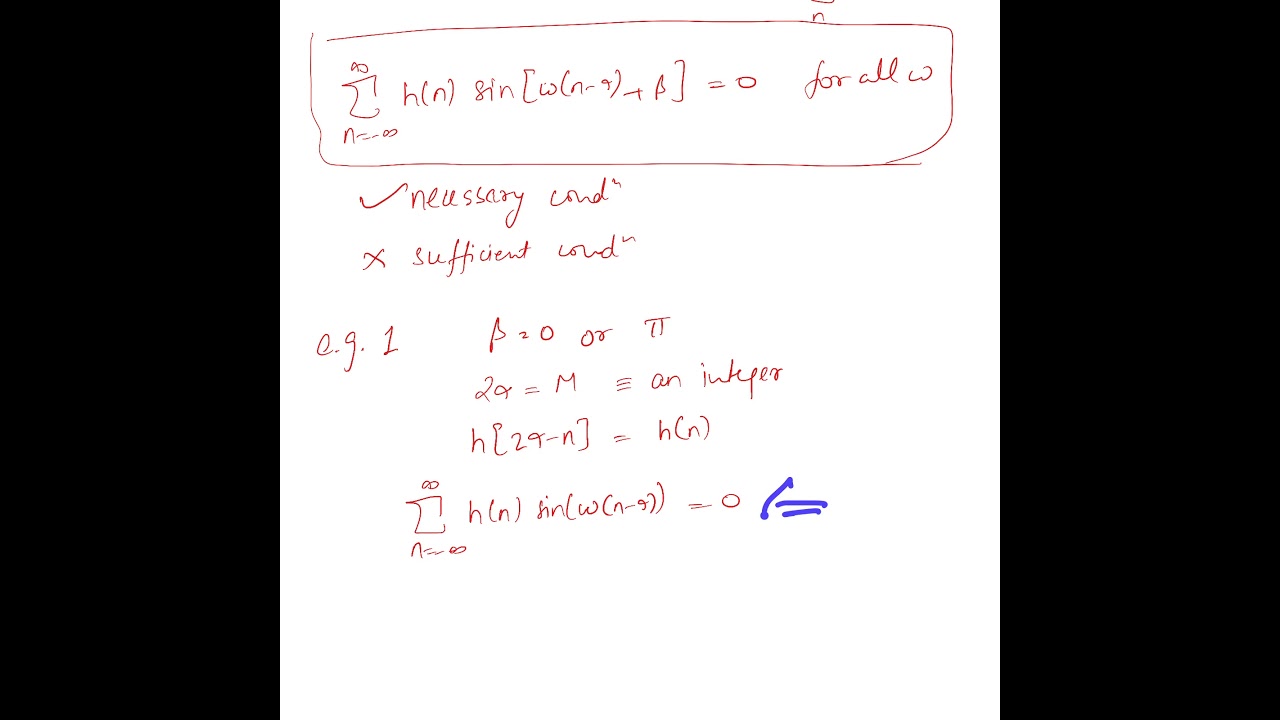 n
∞
∑ h(n) sin[ω(n-α)+β] = 0 for all ω
n=-∞
✓ necessary condⁿ
× sufficient condⁿ
e.g. 1 β = 0 or π
2α = M ≡ an integer
h[2α-n] = h(n)
∞
∑ h(n) sin(ω(n-α)) = 0 ⇐
n=-∞